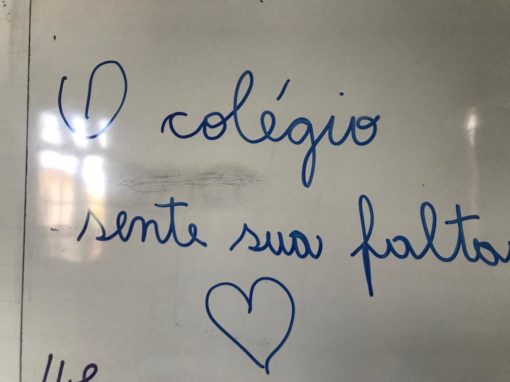 O colégio
sente sua falta